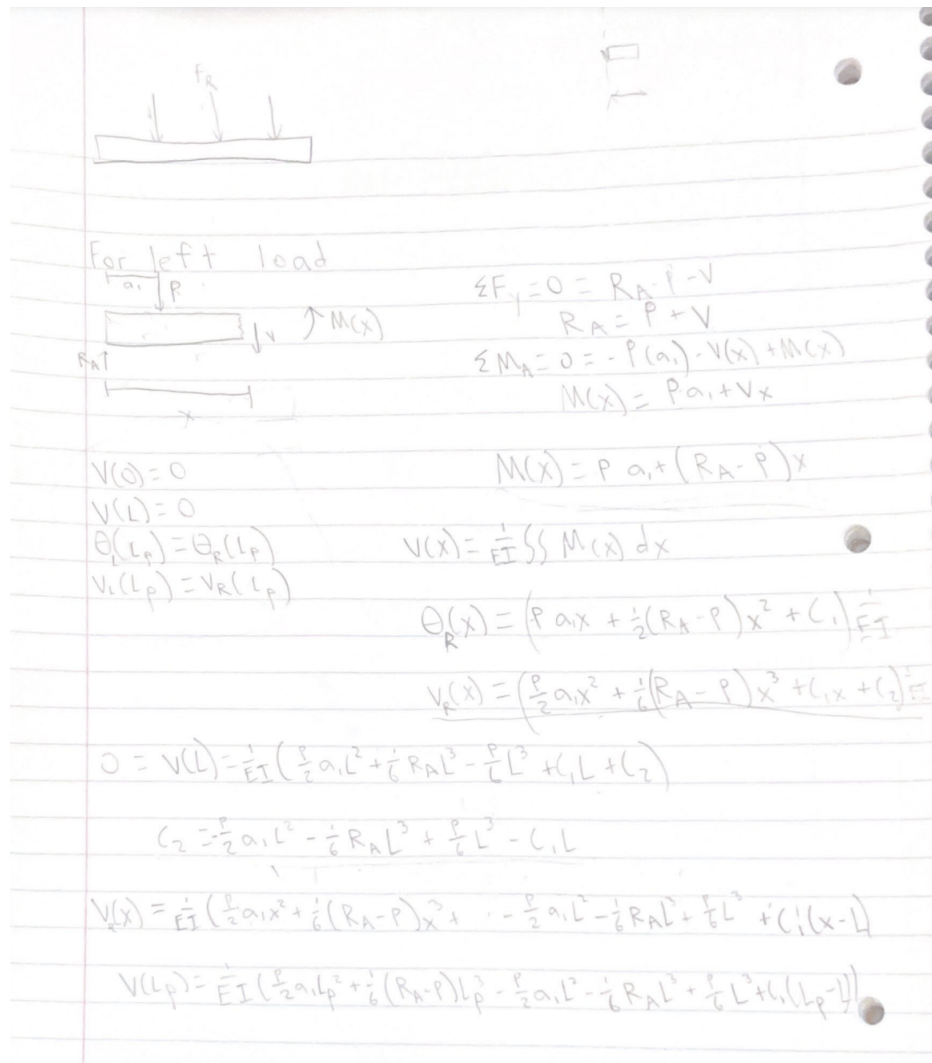 F_R
For left load
a₁ P
ΣF_y = 0 = R_A - P - V
V M(x)
R_A = P + V
R_A
ΣM_A = 0 = -P(a₁) - V(x) + M(x)
x
M(x) = P a₁ + Vx
V(0) = 0
M(x) = P a₁ + (R_A - P)x
V(L) = 0
θ_L(L_P) = θ_R(L_P)
V(x) = 1/EI ∫∫ M(x) dx
V_L(L_P) = V_R(L_P)
θ_R(x) = (P a₁x + 1/2(R_A - P)x² + C₁) 1/EI
V_R(x) = (P/2 a₁x² + 1/6(R_A - P)x³ + C₁x + C₂) 1/EI
0 = V(L) = 1/EI (P/2 a₁L² + 1/6 R_A L³ - P/6 L³ + C₁L + C₂)
C₂ = -P/2 a₁L² - 1/6 R_A L³ + P/6 L³ - C₁L
V_R(x) = 1/EI (P/2 a₁x² + 1/6(R_A - P)x³ + - P/2 a₁L² - 1/6 R_A L³ + P/6 L³ + C₁(x - L)
V(L_P) = 1/EI (P/2 a₁L_P² + 1/6(R_A - P)L_P³ - P/2 a₁L² - 1/6 R_A L³ + P/6 L³ + C₁(L_P - L))